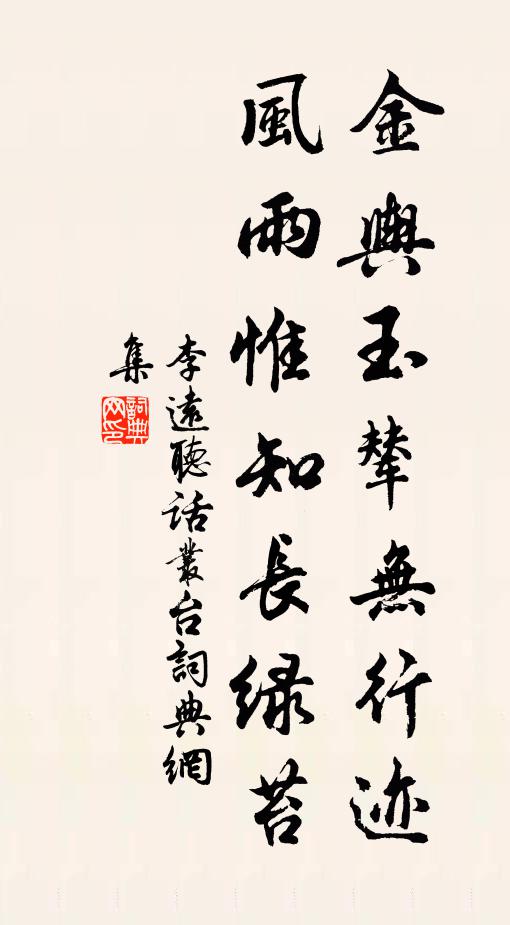 金輿玉輦無行迹
風雨惟知長緑苔
李遠聽話叢台詞典網
集
詞典
网印